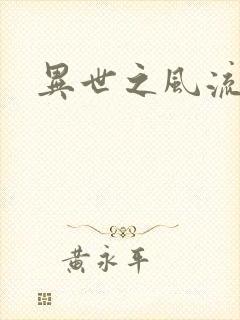 異世之風流
黃永平